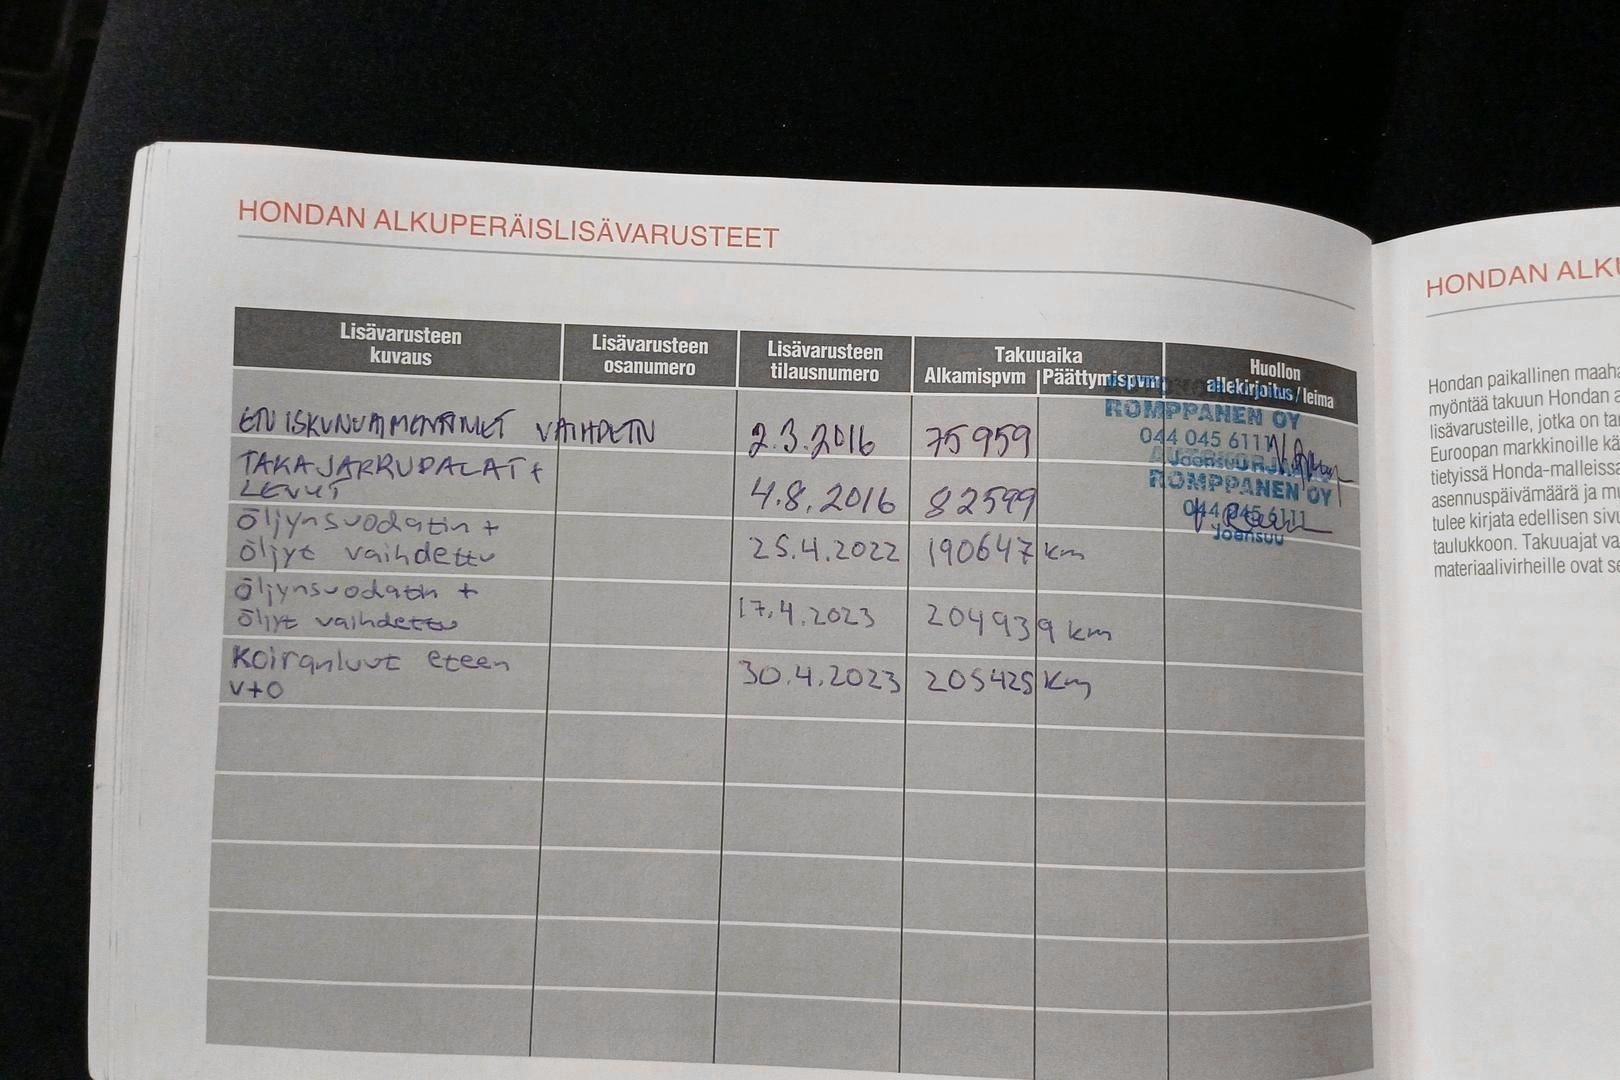 HONDAN ALKUPERÄISLISÄVARUSTEET
Lisävarusteen
kuvaus
Lisävarusteen
osanumero
Lisävarusteen
tilausnumero
Takuuaika
Alkamispvm
Päättymispvm
Huollon
allekirjoitus / leima
VAIHDETTU 2.3.2016 75959
ROMPPANEN OY
044 045 6111
TAKAJARRUPALAT +
LEVYT 4.8.2016 82599
ROMPPANEN OY
044 045 6111
Joensuu
öljynsuodatin +
öljyt vaihdettu 25.4.2022 190647 km
öljynsuodatin +
öljyt vaihdettu 17.4.2023 204939 km
Koiranluut eteen
V+O 30.4.2023 205425 km
HONDAN ALKU
Hondan paikallinen maaha
myöntää takuun Hondan a
lisävarusteille, jotka on ta
Euroopan markkinoille kä
tietyissä Honda-malleissa
asennuspäivämäärä ja mu
tulee kirjata edellisen sivu
taulukkoon. Takuuajat va
materiaalivirheille ovat se